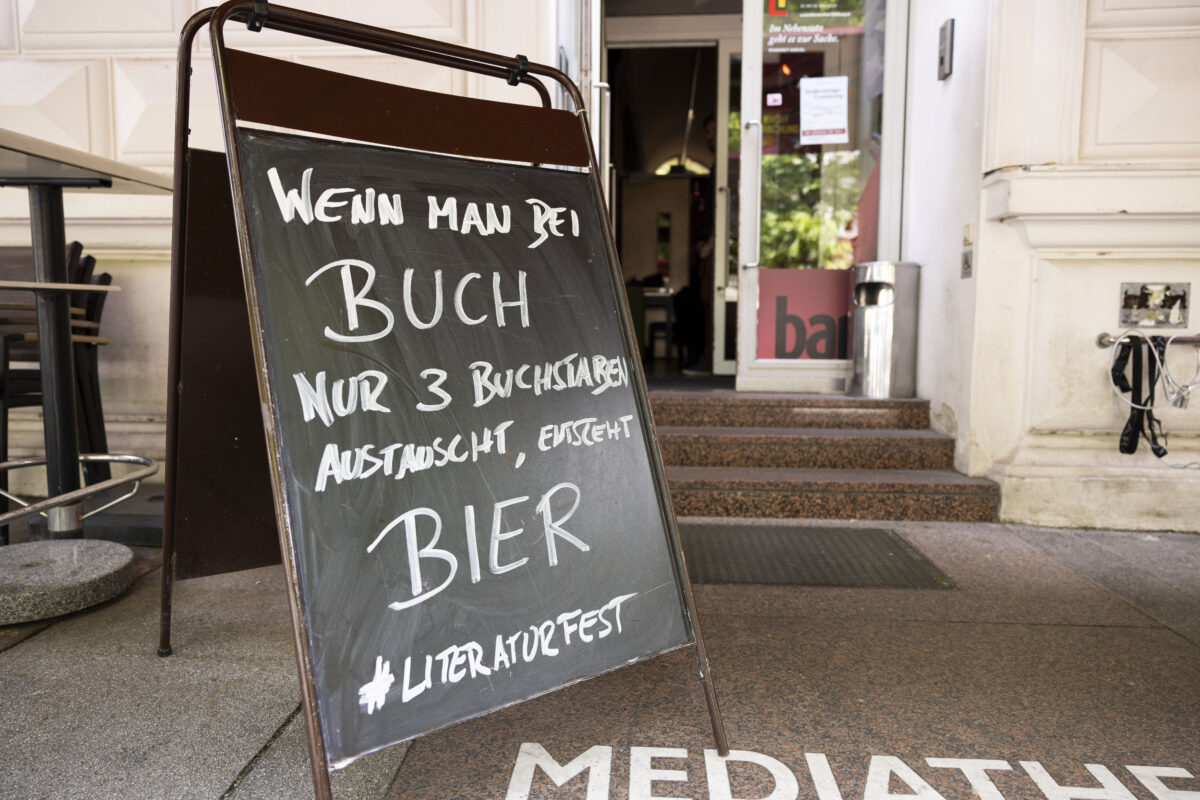 Im Nebensatz
geht es zur Sache.
WENN MAN BEI
BUCH
NUR 3 BUCHSTABEN
AUSTAUSCHT, ENTSTEHT
BIER
#LITERATURFEST
bar
MEDIATHE